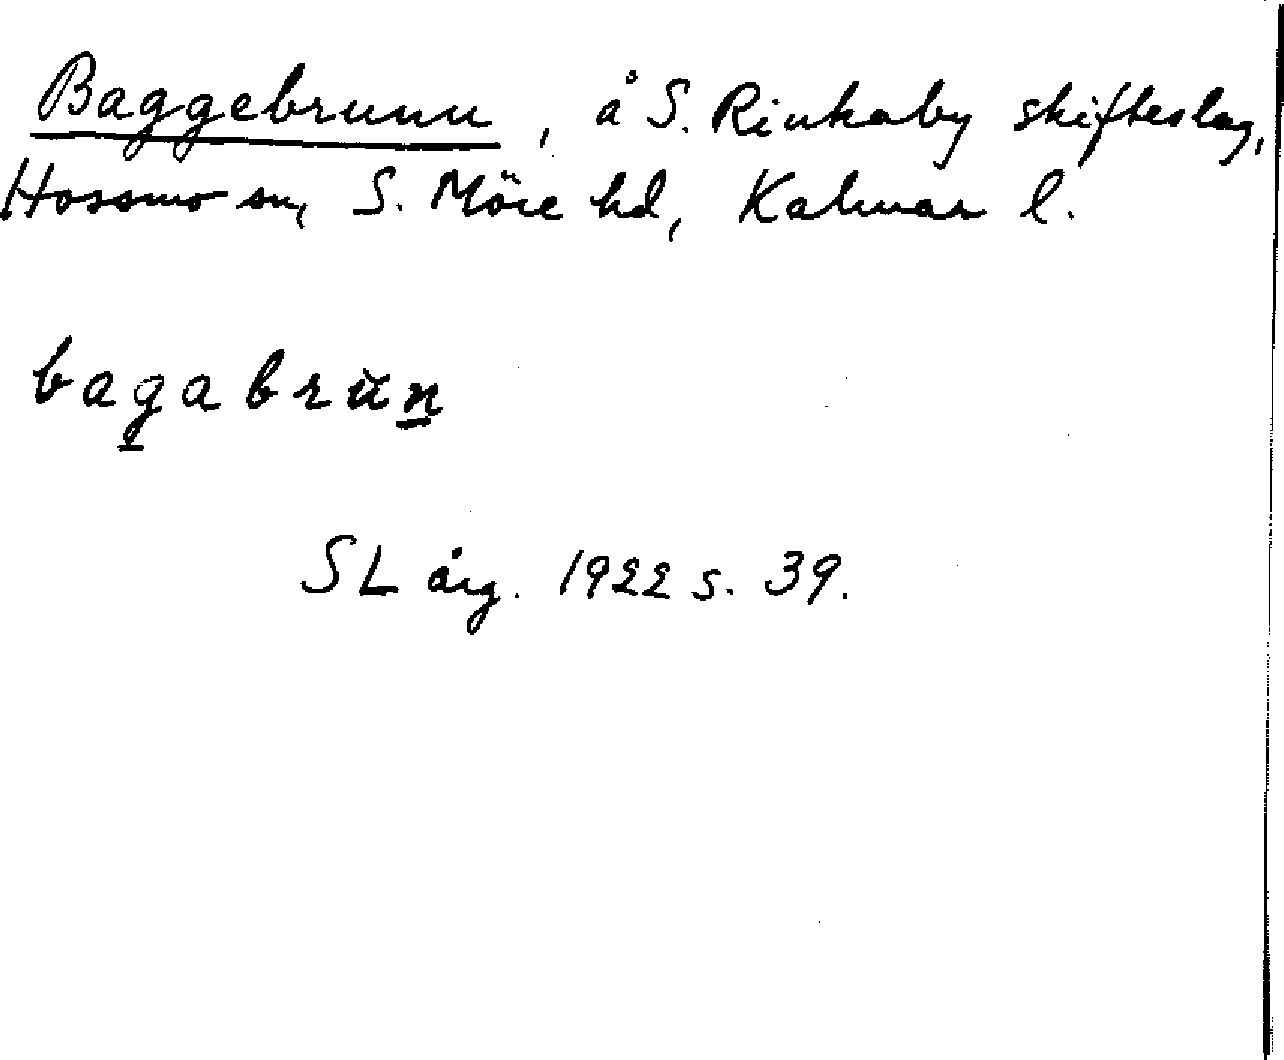 Baggebrunn, å S. Rinkaby skifteslag,
Hossmo sn, S. Möre hd, Kalmar l.
bagabrun
SL årg. 1922 s. 39.